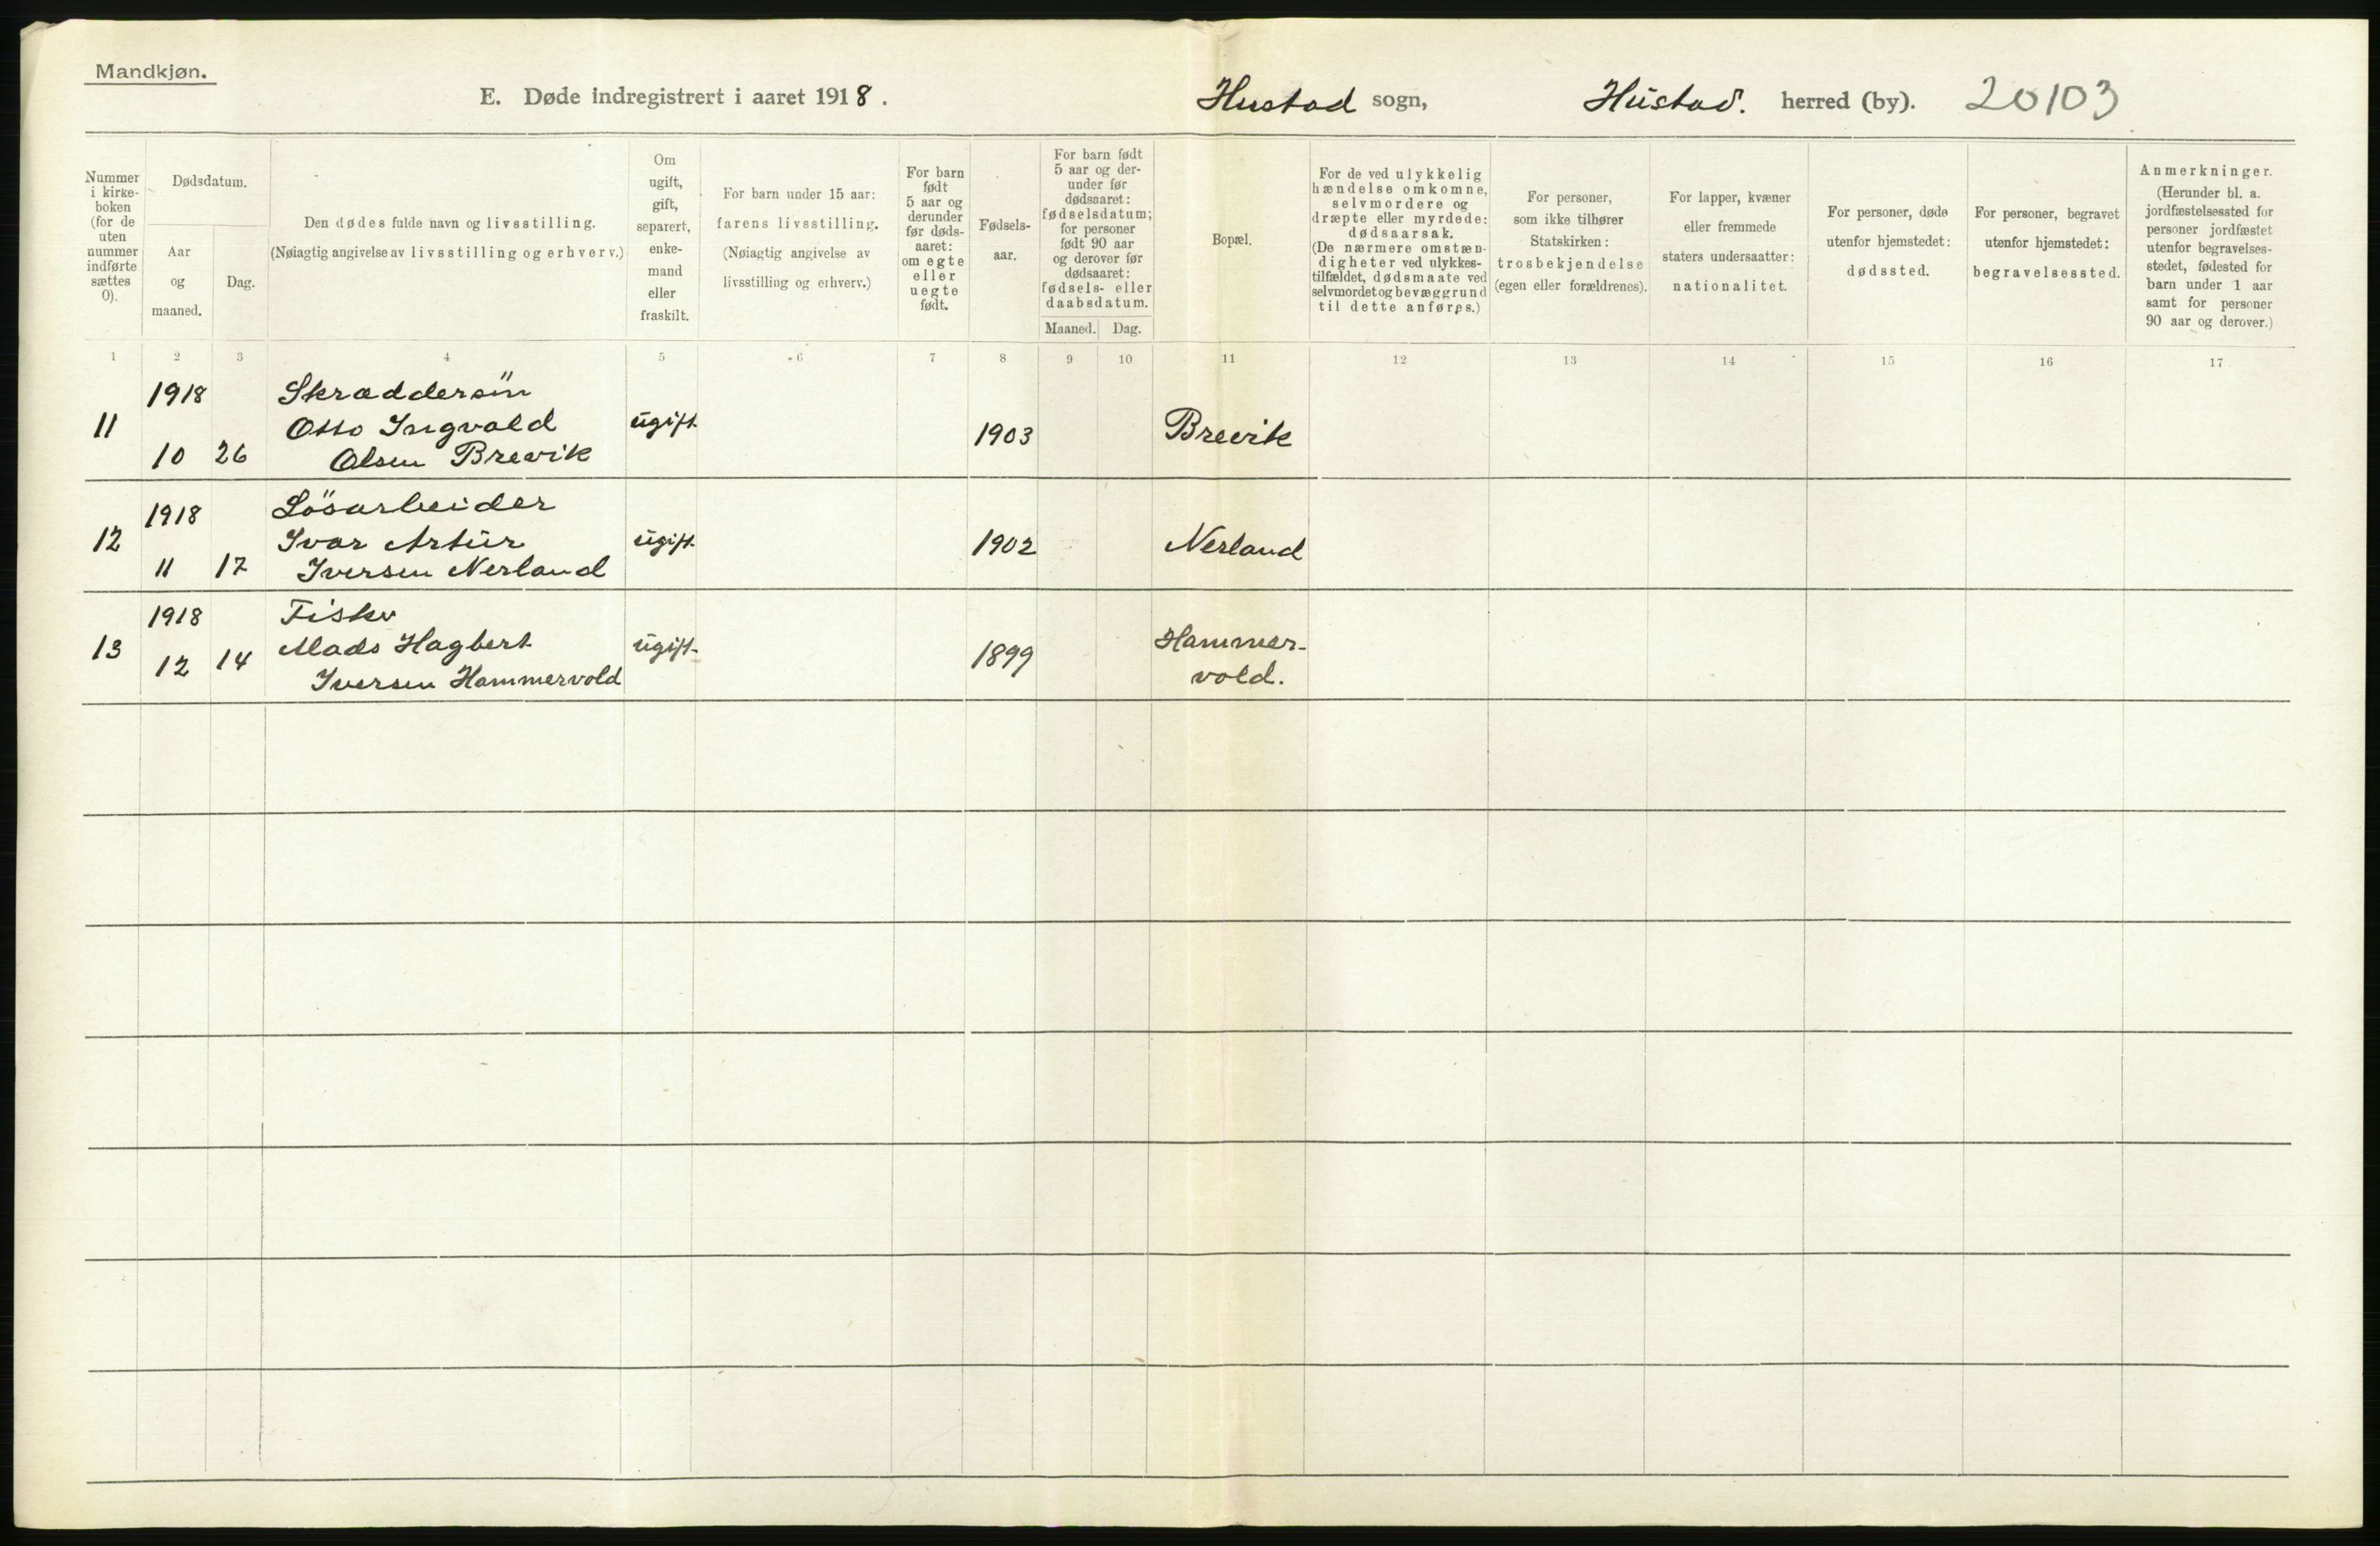 Mandkjøn.
E. Døde indregistrert i aaret 1918. Hustad sogn, Hustad. herred (by). 20103
Nummer i kirke- boken (for de uten nummer indførte sættes 0).
Dødsdatum.
Aar og maaned.
Dag.
Den dødes fulde navn og livsstilling.
(Nøiagtig angivelse av livsstilling og erhverv.)
Om ugift, gift, separert, enke- mand eller fraskilt.
For barn under 15 aar:
farens livsstilling.
(Nøiagtig angivelse av
livsstilling og erhverv.)
For barn født 5 aar og derunder før døds- aaret: om egte eller uegte født.
Fødsels- aar.
For barn født 5 aar og der- under før dødsaaret: fødselsdatum; for personer født 90 aar og derover før dødsaaret: fødsels- eller daabsdatum.
Maaned. Dag.
Bopæl.
For de ved ulykkelig hændelse omkomne, selvmordere og dræpte eller myrdede: dødsaarsak. (De nærmere omstæn- digheter ved ulykkes- tilfældet, dødsmaate ved selvmordet og bevæggrund til dette anføres.)
For personer, som ikke tilhører Statskirken: trosbekjendelse (egen eller forældrenes).
For lapper, kvæner eller fremmede staters undersaatter: nationalitet.
For personer, døde utenfor hjemstedet: dødssted.
For personer, begravet utenfor hjemstedet: begravelsessted.
Anmerkninger.
(Herunder bl. a. jordfæstelsessted for personer jordfæstet utenfor begravelses- stedet, fødested for barn under 1 aar samt for personer 90 aar og derover.)
1 2 3 4 5 6 7 8 9 10 11 12 13 14 15 16 17
1918 Skræddersün
11 Otto Ingvald ugift 1903 Brevik
10 26 Olsen Brevik
1918 Lösarbeider
12 Ivar Artür ugift 1902 Nerland
11 17 Iversen Nerland
1918 Fisker
13 Mads Hagbert ugift 1899 Hammer-
12 14 Iversen Hammervold vold.